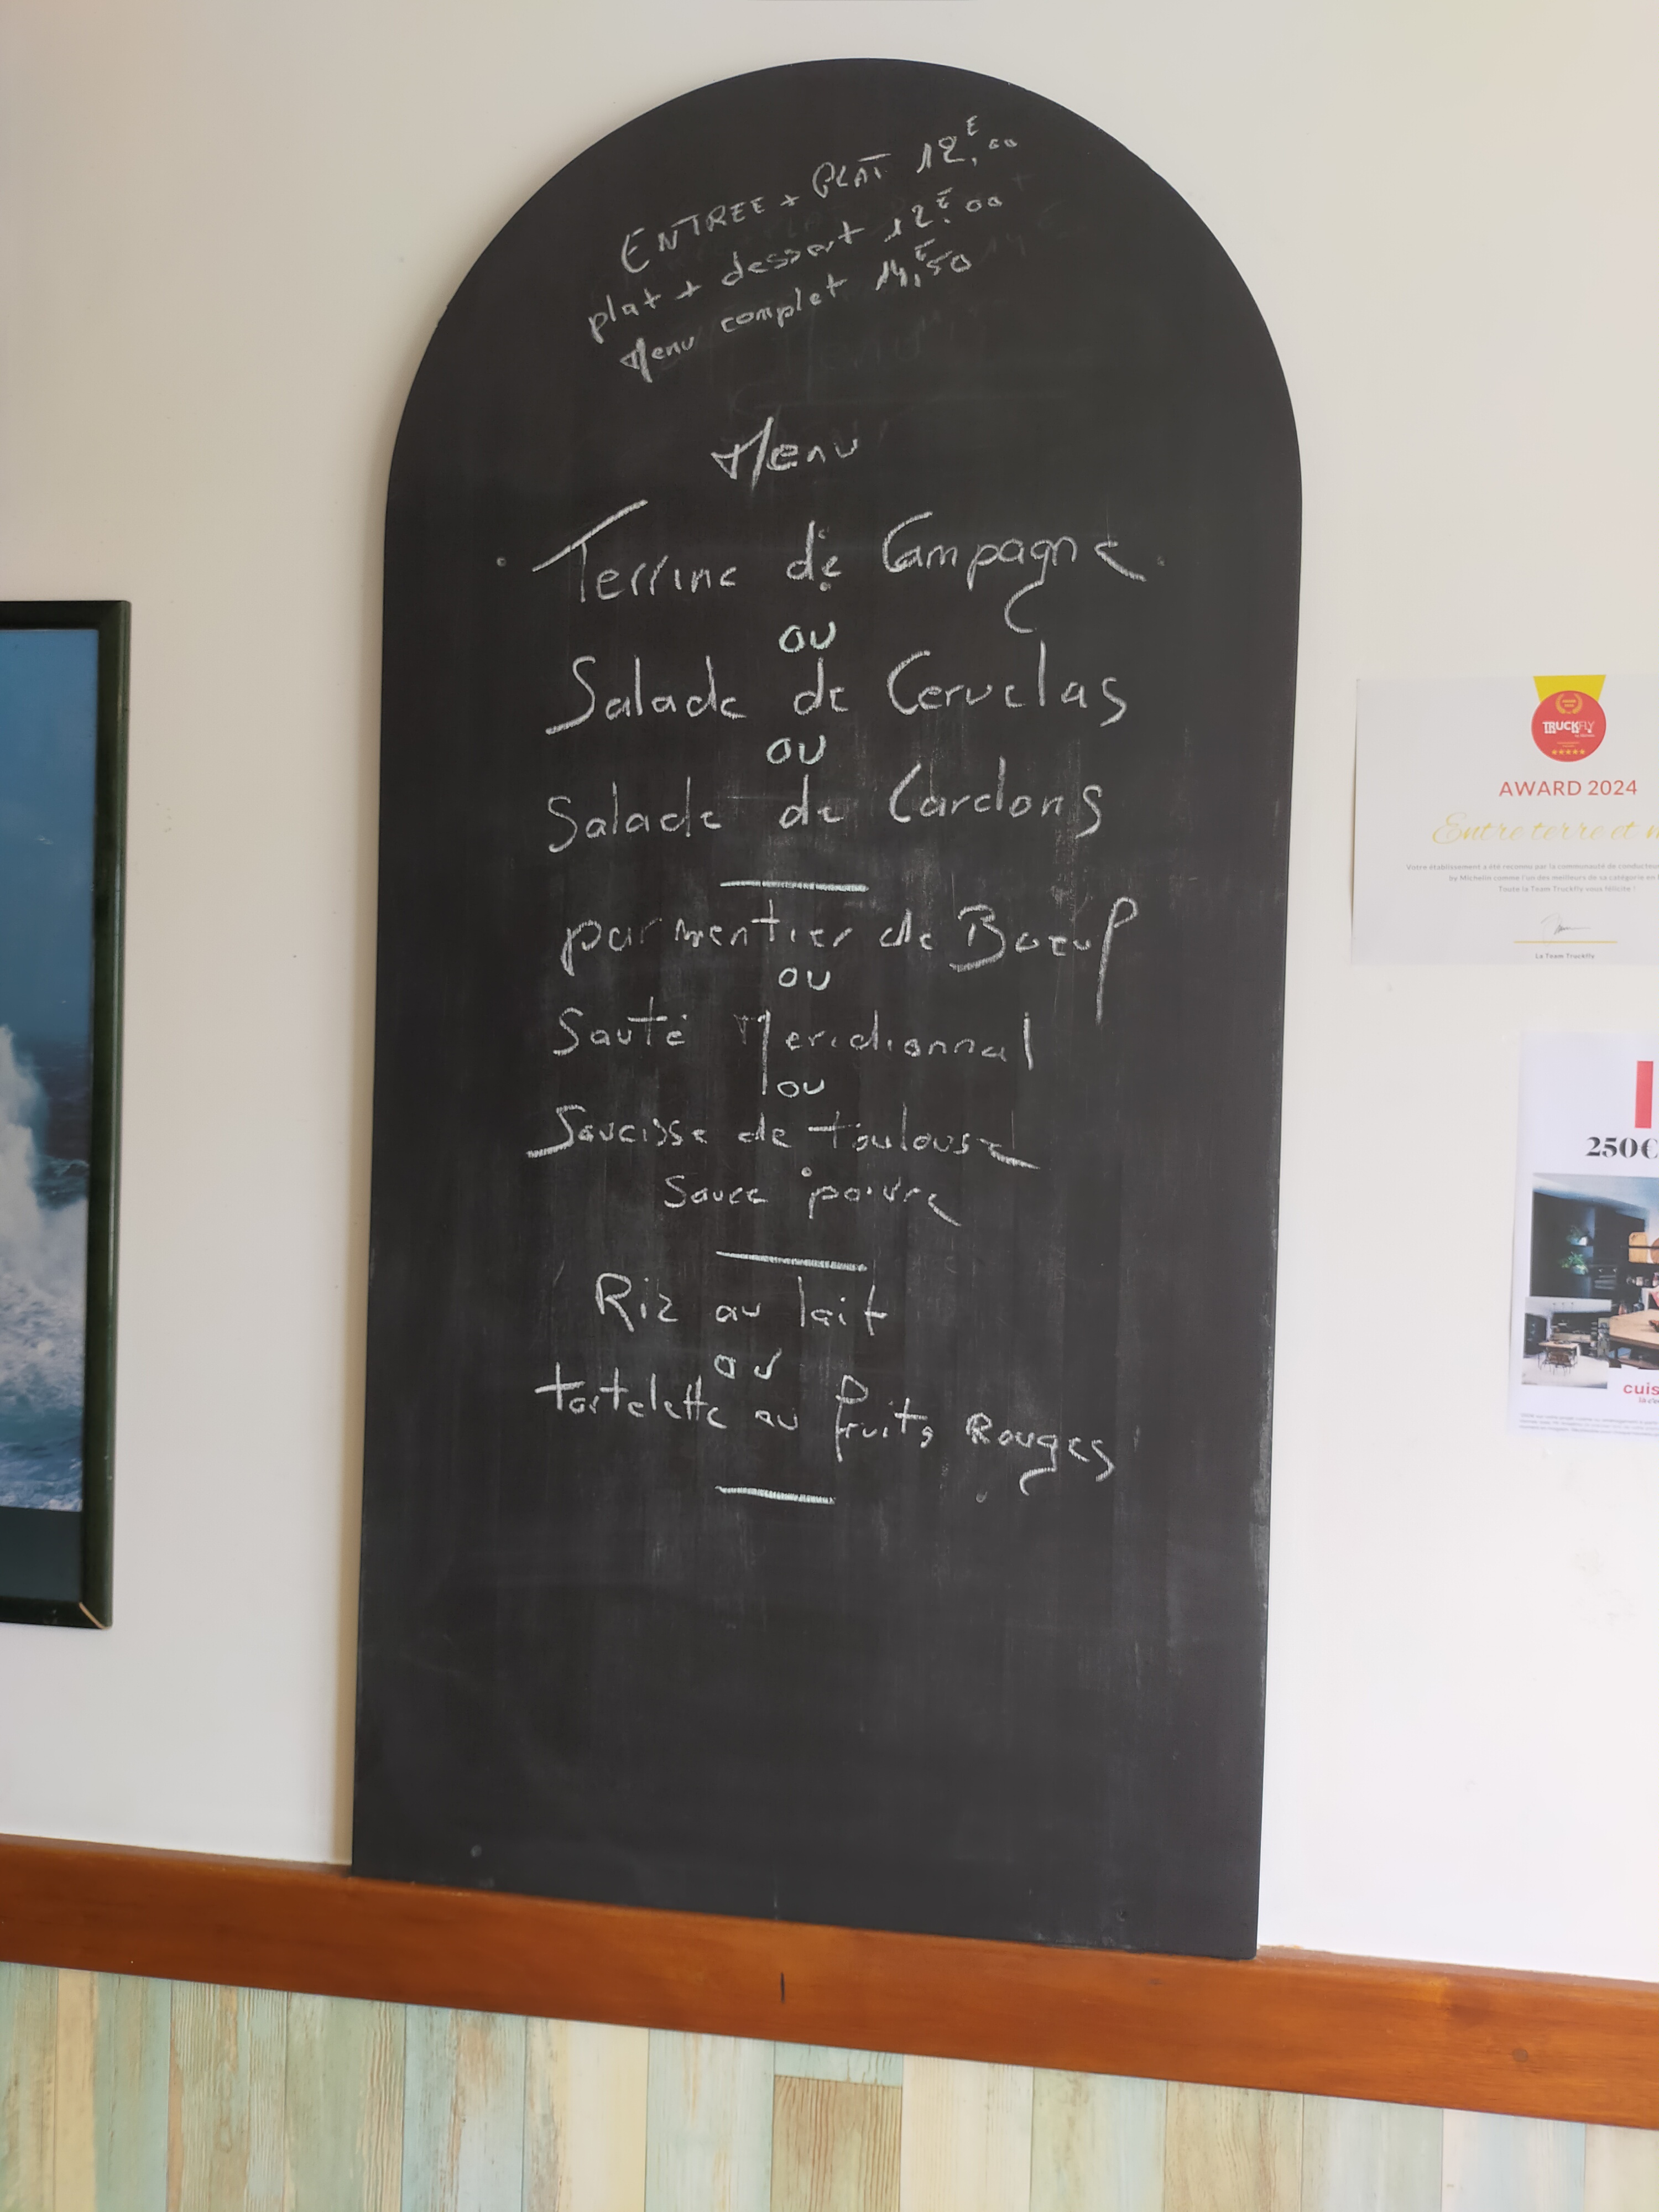 ENTREE + PLAT 12,€00
plat + dessert 12,€00
Menu complet 14,€50
Menu
Terrine de Campagne
ou
Salade de Cervelas
ou
Salade de Cardons
parmentier de Boeuf
ou
Sauté Meridionnal
ou
Saucisse de toulouse
Sauce poivre
Riz au lait
ou
tartelette au fruits Rouges
TRUCKFLY
AWARD 2024
Entre terre et
Votre établissement a été reconnu par la communauté de conducteur
by Michelin comme l'un des meilleurs de sa catégorie en
Toute la Team Truckfly vous félicite !
La Team Truckfly
250€
cuis